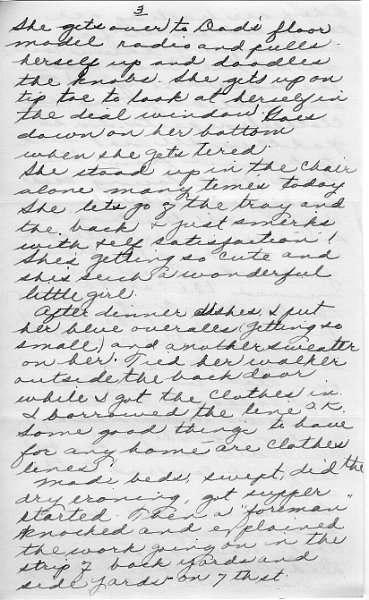 3
She gets over to Dad's floor
model radio and pulls
herself up and doodles
the knobs. She gets up on
tip toe to look at herself in
the dial window. Goes
down on her bottom
when she gets tired.
She stood up in the chair
alone many times today.
She lets go of the tray and
the back & just smirks
with self satisfaction!
She's getting so cute and
she's such a wonderful
little girl.
After dinner dishes, I put
her blue overalls (getting so
small) and another sweater
on her. Tied her walker
outside the back door
while I got the clothes in.
I borrowed the line O.K.
Some good things to have
for any home are clothes
lines.
Made beds, swept, did the
dry ironing, got supper
started. Then a "foreman"
knocked and explained
the work going on in the
strip of back yards and
side yards on 7th st.